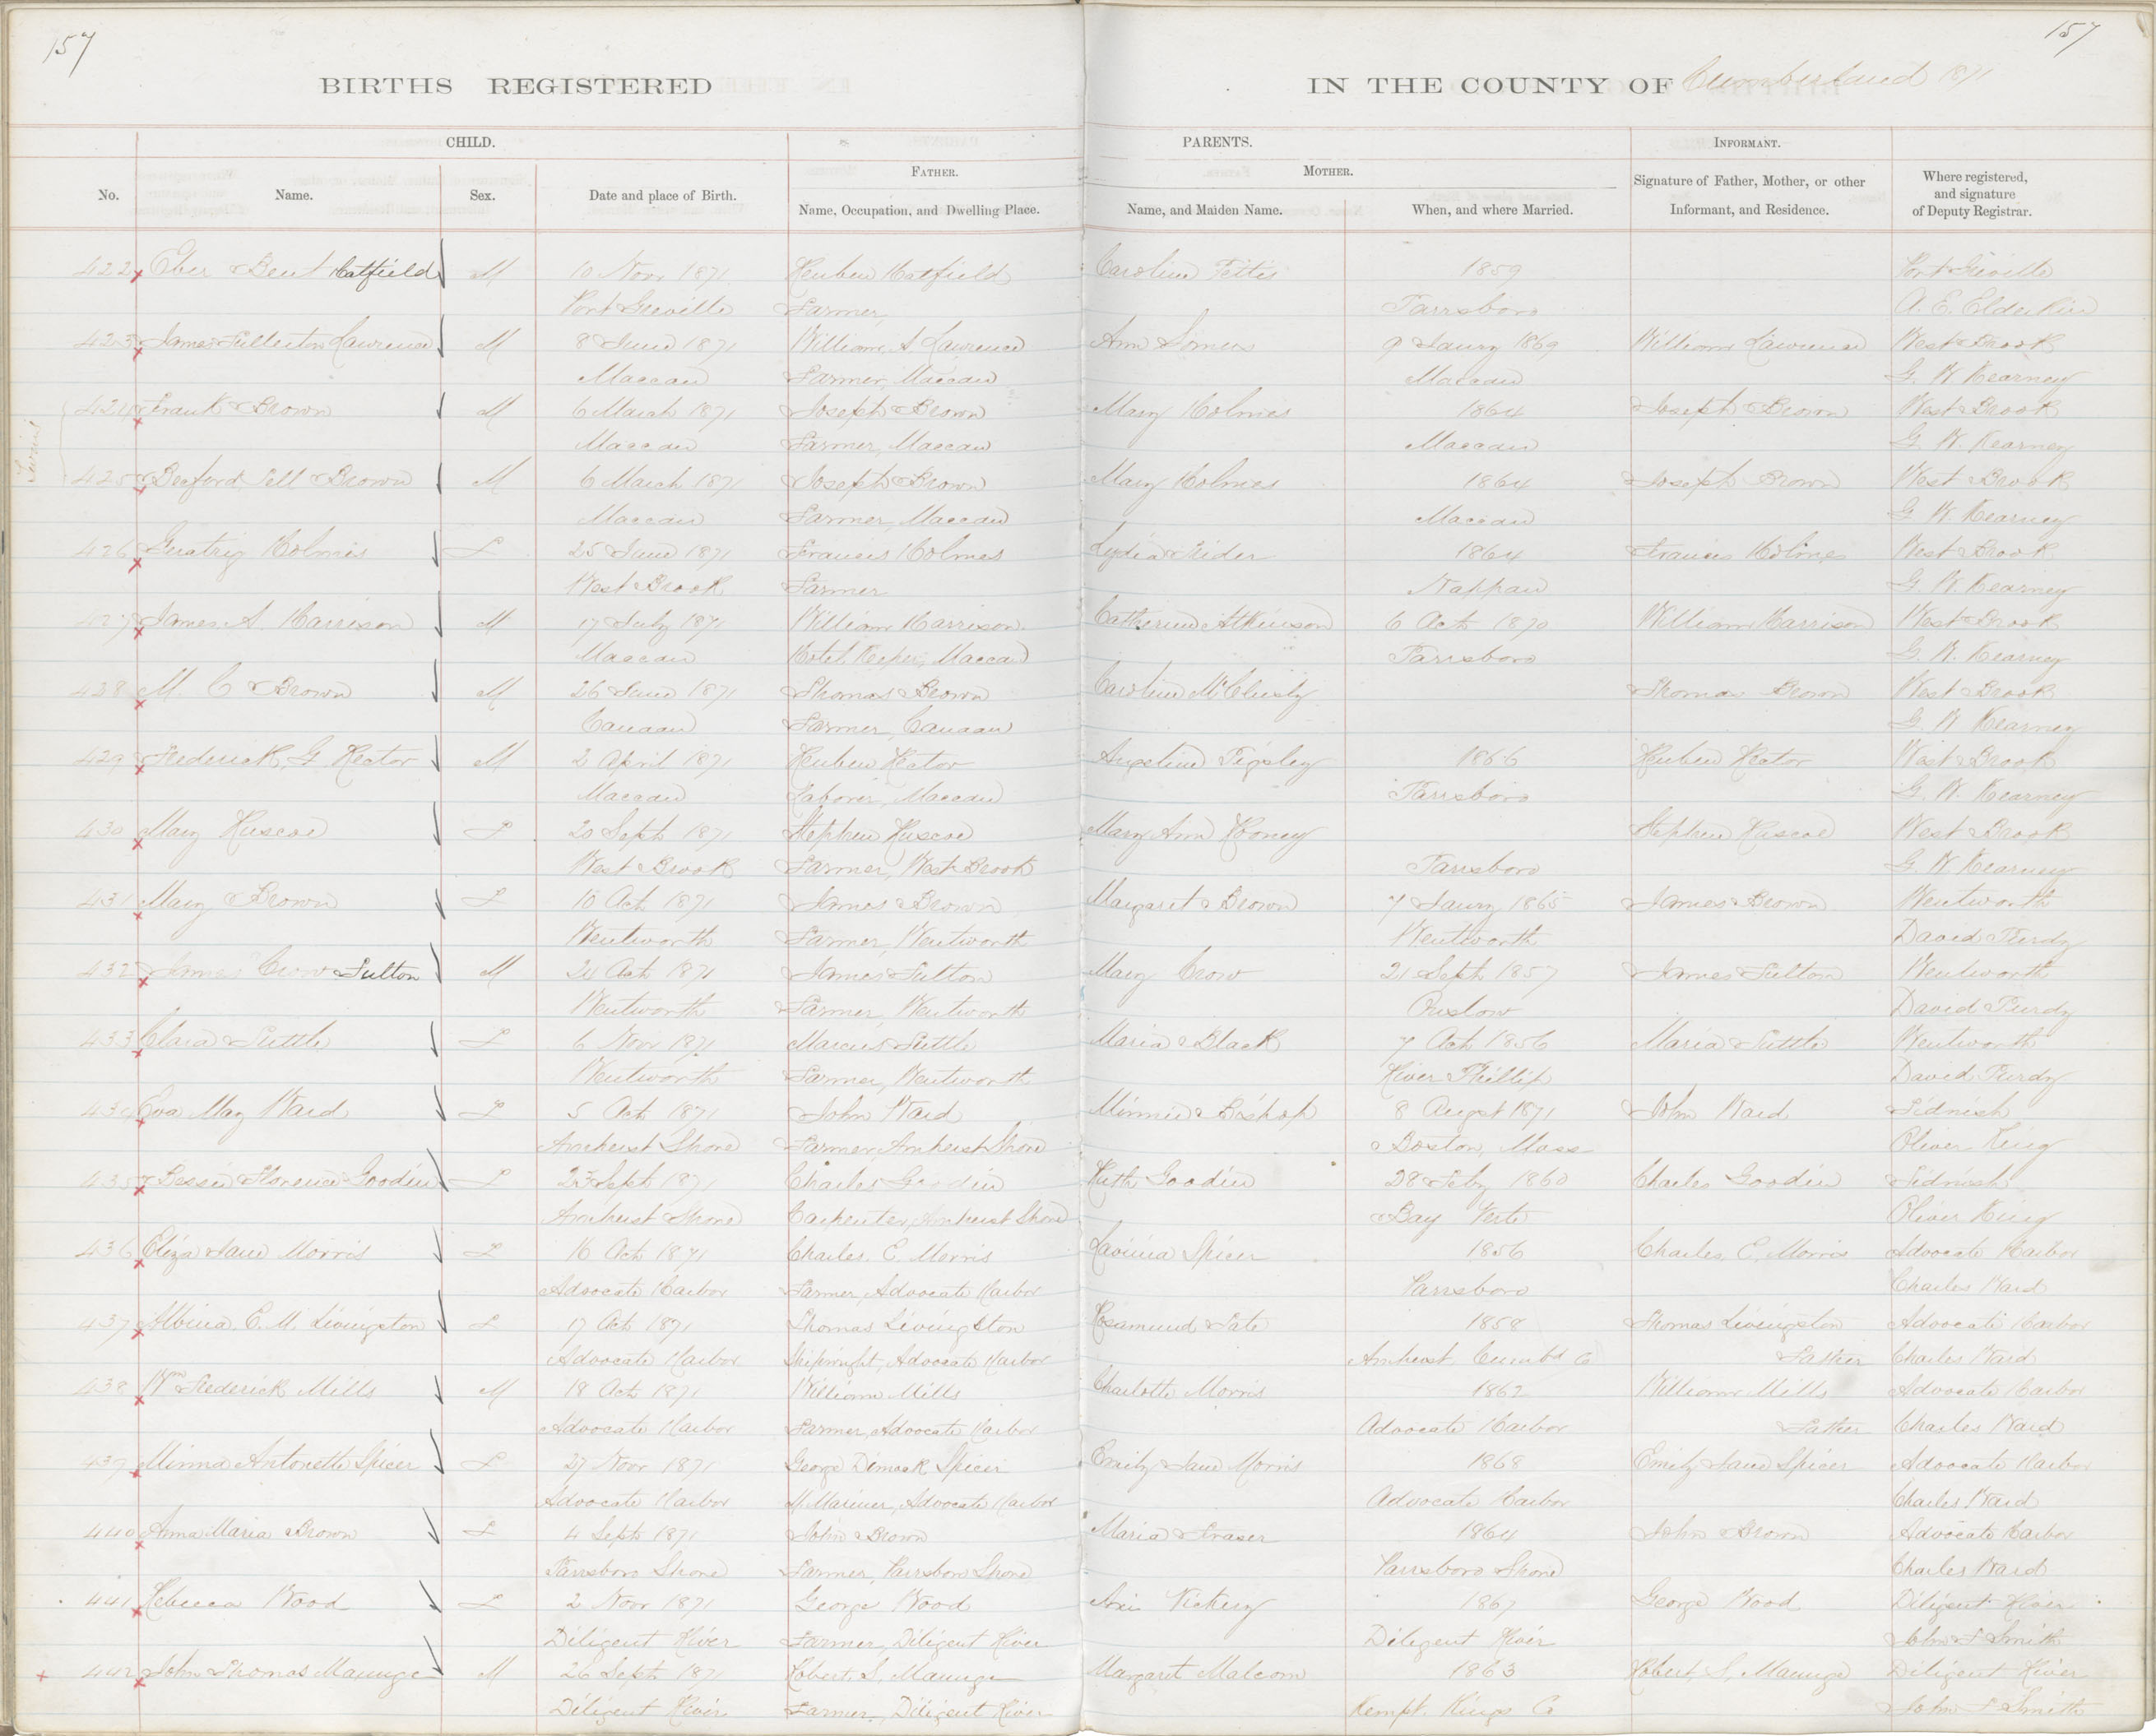 157
157
BIRTHS REGISTERED IN THE COUNTY OF Cumberland 1871
CHILD. PARENTS. INFORMANT.
FATHER. MOTHER.
No. Name. Sex. Date and place of Birth. Name, Occupation, and Dwelling Place. Name, and Maiden Name. When, and where Married. Signature of Father, Mother, or other Informant, and Residence. Where registered, and signature of Deputy Registrar.
422 Eber Bent Hatfield M 10 Novr 1871 Reuben Hatfield Caroline 1859 Port Greville
Port Greville Farmer, Parrsboro A. E. Elderkin
423 James Fullerton Lawrence M 8 June 1871 William A. Lawrence Ann 9 Jany 1869 William Lawrence West Brook
Maccan Farmer, Maccan Maccan G. W. Kearney
Twins
424 Frank Brown M 6 March 1871 Joseph Brown Mary Holmes 1864 Joseph Brown West Brook
Maccan Farmer, Maccan Maccan G. W. Kearney
425 Bedford Brown M 6 March 1871 Joseph Brown Mary Holmes 1864 Joseph Brown West Brook
Maccan Farmer, Maccan Maccan G. W. Kearney
426 Holmes F 25 June 1871 Francis Holmes Lydia 1864 Francis Holmes West Brook
West Brook Farmer Nappan G. W. Kearney
427 James A. Harrison M 17 July 1871 William Harrison Catherine Atkinson 6 Oct 1870 William Harrison West Brook
Maccan Hotel Keeper, Maccan Parrsboro G. W. Kearney
428 M. C Brown M 26 June 1871 Thomas Brown Caroline Thomas Brown West Brook
Canaan Farmer, Canaan G. W. Kearney
429 Frederick G. Rector M 2 April 1871 Reuben Rector Angeline 1866 Reuben Rector West Brook
Maccan Laborer, Maccan Parrsboro G. W. Kearney
430 Mary Ruscoe F 20 Sept 1871 Stephen Ruscoe Mary Ann Rooney Stephen Ruscoe West Brook
West Brook Farmer, West Brook Parrsboro G. W. Kearney
431 Mary Brown F 10 Oct 1871 James Brown Margaret Brown 7 Jany 1865 James Brown Wentworth
Wentworth Farmer, Wentworth Wentworth David Purdy
432 James Crow Fulton M 20 Oct 1871 James Fulton Mary Crow 21 Sept 1857 James Fulton Wentworth
Wentworth Farmer, Wentworth Onslow David Purdy
433 Clara Tuttle F 6 Novr 1871 Marcus Tuttle Maria Black 7 Oct 1856 Maria Tuttle Wentworth
Wentworth Farmer, Wentworth River Phillip David Purdy
434 Eva May Ward F 5 Oct 1871 John Ward Minnie Bishop 8 August 1871 John Ward Tidnish
Amherst Shore Farmer, Amherst Shore Boston, Mass Oliver King
435 Bessie Florence Goodin F 23 Sept 1871 Charles Goodin Ruth Goodin 28 Feby 1860 Charles Goodin Tidnish
Amherst Shore Carpenter, Amherst Shore Bay Verte Oliver King
436 Eliza Jane Morris F 16 Oct 1871 Charles E. Morris Lavinia Spicer 1856 Charles E. Morris Advocate Harbor
Advocate Harbor Farmer, Advocate Harbor Parrsboro Charles Ward
437 Albina E. M. Livingston F 17 Oct 1871 Thomas Livingston Rosamund Tate 1858 Thomas Livingston Advocate Harbor
Advocate Harbor Shipwright, Advocate Harbor Amherst, Cumbd Co Father Charles Ward
438 Wm Frederick Mills M 18 Oct 1871 William Mills Charlotte Morris 1862 William Mills Advocate Harbor
Advocate Harbor Farmer, Advocate Harbor Advocate Harbor Father Charles Ward
439 Minna Antonette Spicer F 27 Novr 1871 George Dimock Spicer Emily Jane Morris 1868 Emily Jane Spicer Advocate Harbor
Advocate Harbor M. Mariner, Advocate Harbor Advocate Harbor Charles Ward
440 Anna Maria Brown F 4 Sept 1871 John Brown Maria Fraser 1864 John Brown Advocate Harbor
Parrsboro Shore Farmer, Parrsboro Shore Parrsboro Shore Charles Ward
441 Rebecca Wood F 2 Novr 1871 George Wood Vickery 1867 George Wood Diligent River
Diligent River Farmer, Diligent River Diligent River John F Smith
442 John Thomas M 26 Sept 1871 Robert S. Margaret Malcom 1863 Robert S. Diligent River
Diligent River Farmer, Diligent River Kempt, Kings Co John F Smith